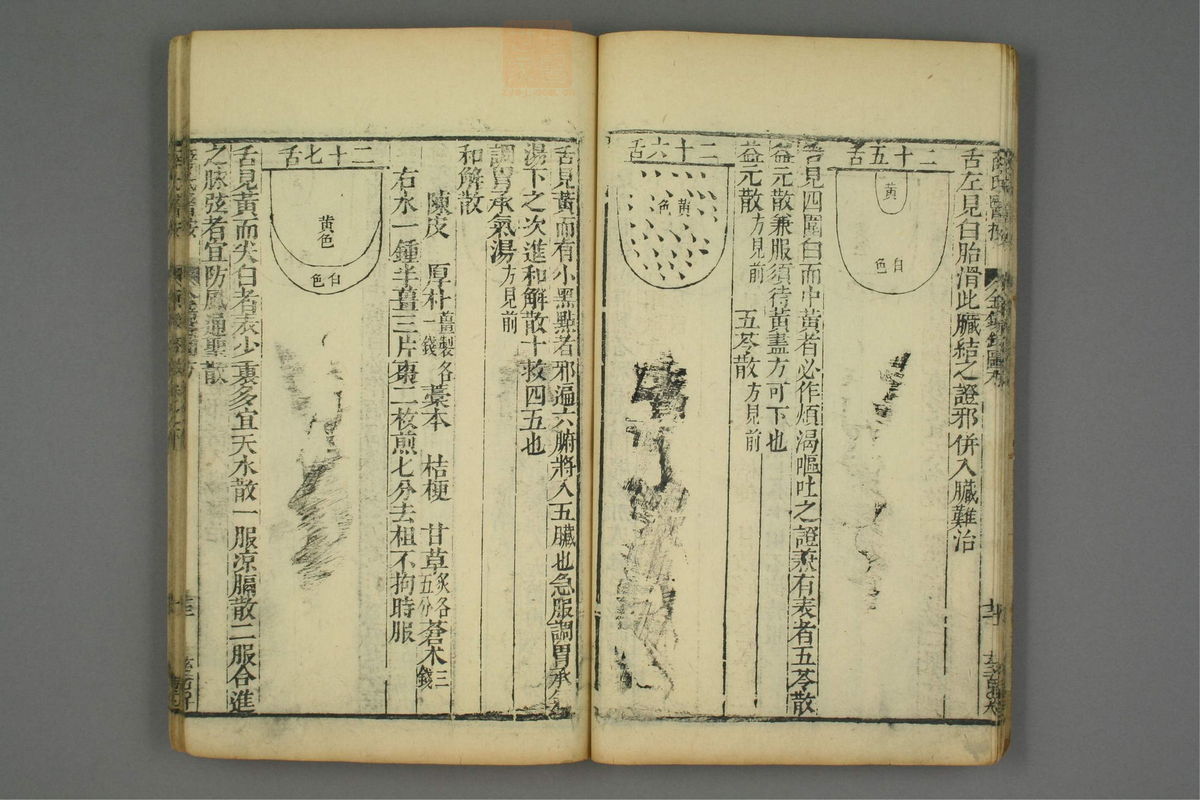 舌左見白胎滑此臟結之證邪併入臟難治
二十五舌
黃
白色
舌見四圍白而中黃者必作煩渴嘔吐之證兼有表者五苓散
益元散兼服須待黃盡方可下也
益元散方見前　五苓散方見前
二十六舌
黃色
舌見黃而有小黑點者邪遍六腑將入五臟也急服調胃承氣
湯下之次進和解散十救四五也
調胃承氣湯方見前
和解散
陳皮　厚朴薑製各一錢　藁本　桔梗　甘草炙各五分　蒼朮三錢
右水一鍾半薑三片棗二枚煎七分去柤不拘時服
二十七舌
黃色
白色
舌見黃而尖白者表少裏多宜天水散一服凉膈散二服合進
之脉弦者宜防風通聖散